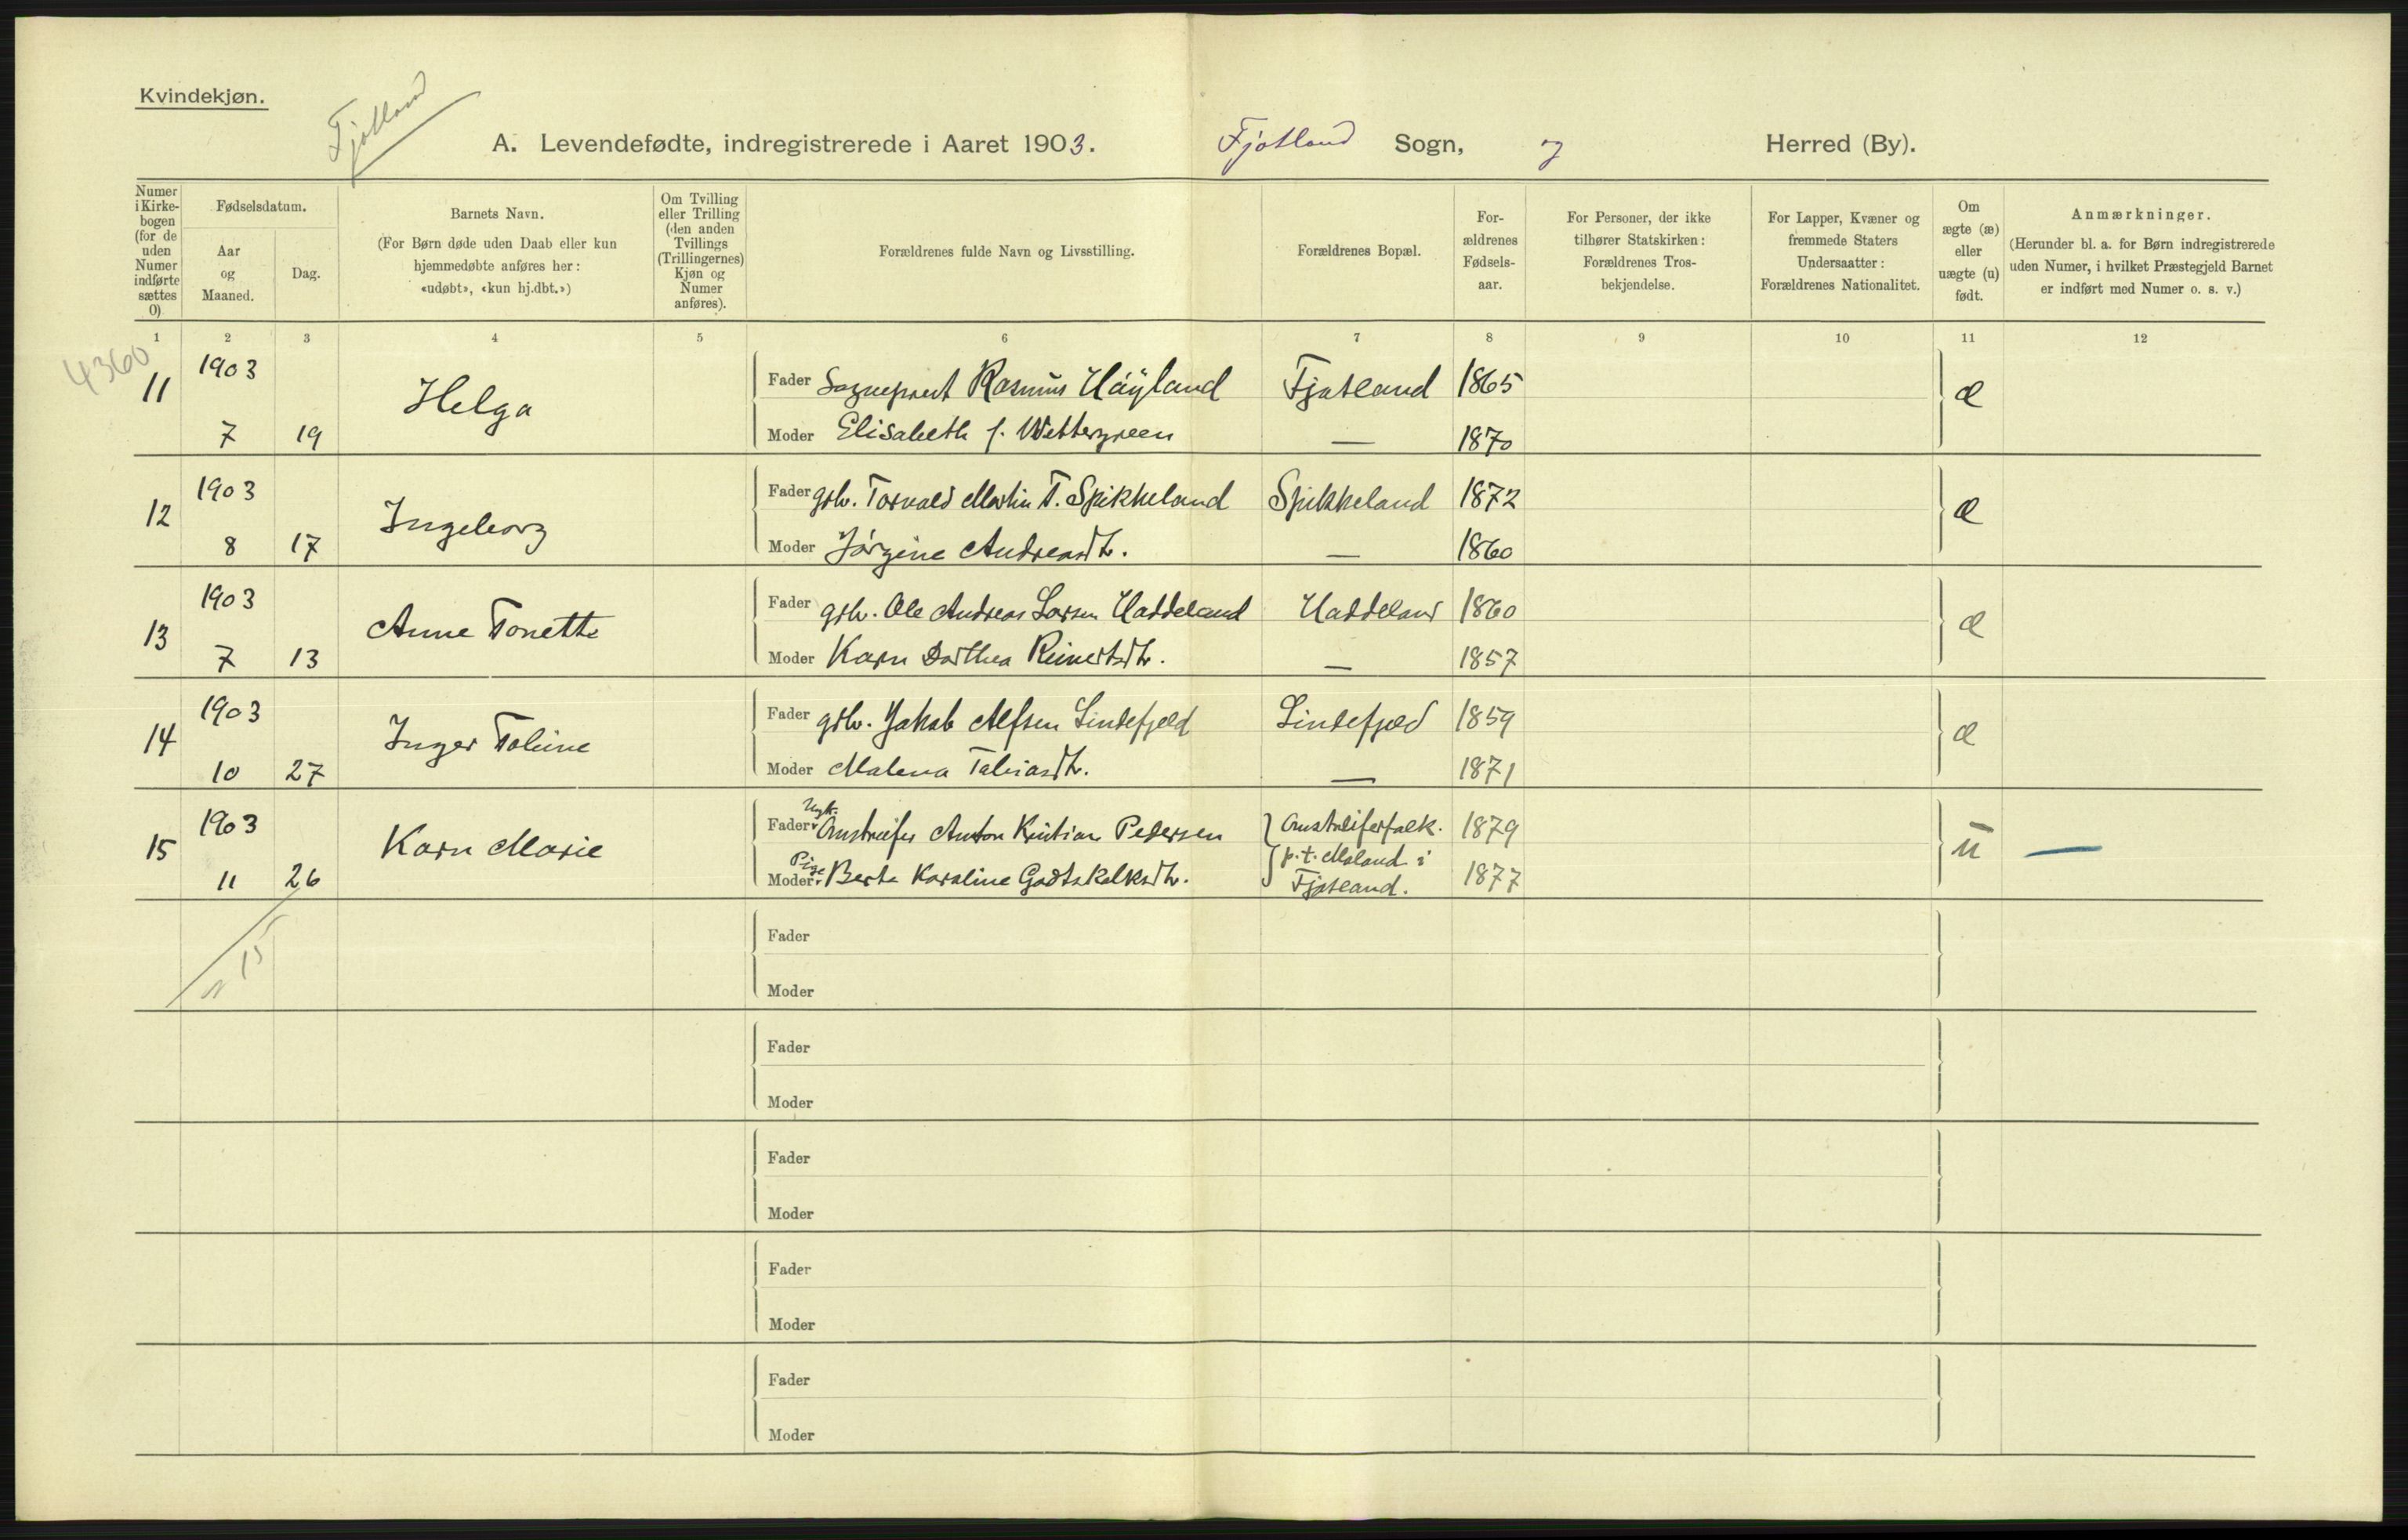 Kvindekjøn.
Fjotland
A. Levendefødte, indregistrerede i Aaret 1903. Fjotland Sogn, og Herred (By).
Numer i Kirkebogen (for de uden Numer indførte sættes 0)
Fødselsdatum.
Aar og Maaned.
Dag.
Barnets Navn.
(For Børn døde uden Daab eller kun hjemmedøbte anføres her: «udøbt», «kun hj.dbt.»)
Om Tvilling eller Trilling (den anden Tvillings (Trillingernes) Kjøn og Numer anføres).
Forældrenes fulde Navn og Livsstilling.
Forældrenes Bopæl.
Forældrenes Fødselsaar.
For Personer, der ikke tilhører Statskirken: Forældrenes Trosbekjendelse.
For Lapper, Kvæner og fremmede Staters Undersaatter: Forældrenes Nationalitet.
Om ægte (æ) eller uægte (u) født.
Anmærkninger.
(Herunder bl. a. for Børn indregistrerede uden Numer, i hvilket Præstegjeld Barnet er indført med Numer o. s. v.)
1 2 3 4 5 6 7 8 9 10 11 12
4360
11 1903 Helga Fader Sogneprest Rasmus Håyland Fjotland 1865 æ
7 19 Moder Elisabeth f. Wettergreen — 1870
12 1903 Ingeborg Fader gbr. Torvald Martin T. Spikkeland Spikkeland 1872 æ
8 17 Moder Jørgine Andreasdtr. — 1860
13 1903 Anne Tonette Fader gbr. Ole Andreas Larsen Haddeland Haddeland 1860 æ
7 13 Moder Karn Dorthea Reinertsdtr. — 1857
14 1903 Inger Tobine Fader gbr. Jakob Alfsen Lindefjeld Lindefjeld 1859 æ
10 27 Moder Malena Tobiasdtr. — 1871
15 1903 Karn Marie Fader Ungk. Omstreifer Anton Kristian Pedersen Omstreiferfolk. 1879 u —
11 26 Moder Pige Berte Karoline Godtskalksdtr. p.t. Moland i Fjotland. 1877
15
Fader
Moder
Fader
Moder
Fader
Moder
Fader
Moder
Fader
Moder